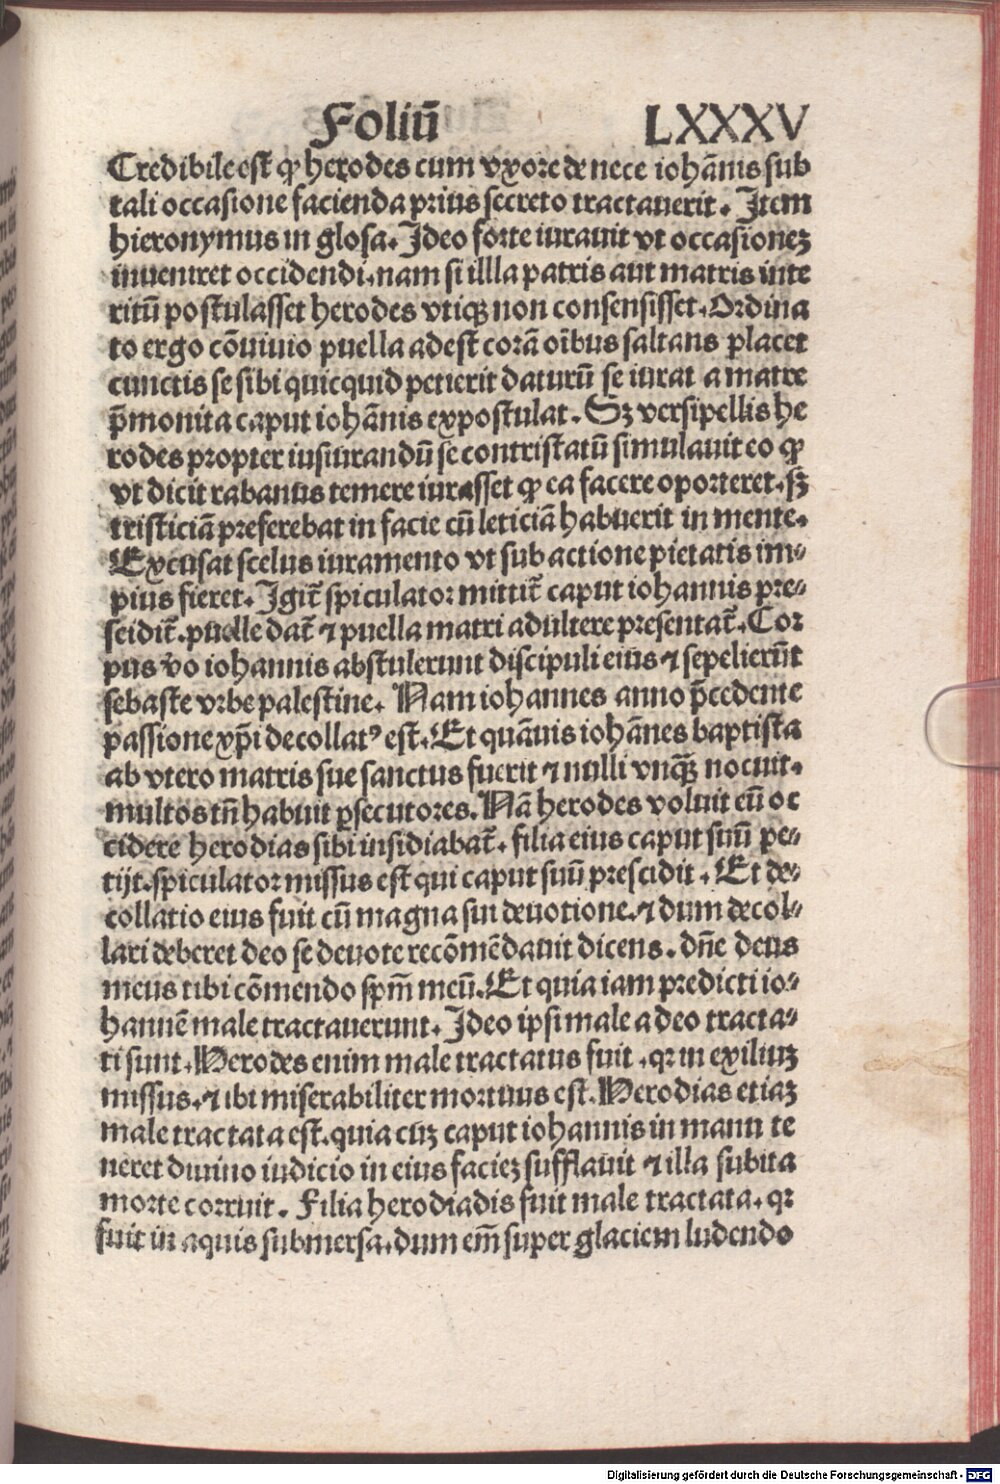 Foliū LXXXV
Credibile est ꝙ herodes cum vxore de nece iohānis sub
tali occasione facienda prius secreto tractauerit. Item
hieronymus in glosa. Ideo forte iurauit vt occasionez
inueniret occidendi. nam si illla patris aut matris inte
ritū postulasset herodes vtiqꝫ non consensisset. Ordina
to ergo cōuiuio puella adest corā oībus saltans placet
cunctis se sibi quicquid petierit daturū se iurat a matre
p̄monita caput iohānis expostulat. Sꝫ versipellis he
rodes propter iusiurandū se contristatū simulauit eo ꝙ
vt dicit rabanus temere iurasset ꝙ ea facere oporteret. sꝫ
tristiciā preferebat in facie cū leticiā habuerit in mente.
Excusat scelus iuramento vt sub actione pietatis im⸗
pius fieret. Igit̄ spiculator mittit̄ caput iohannis pre⸗
scidit̄. puelle dat̄ ⁊ puella matri adultere presentat̄. Cor
pus v̄o iohannis abstulerunt discipuli eius ⁊ sepelierūt
sebaste vrbe palestine. Nam iohannes anno p̄cedente
passione xp̄i decollatꝰ est. Et quāuis iohānes baptista
ab vtero matris sue sanctus fuerit ⁊ nulli vnqꝫ̄ nocuit.
multos tn̄ habuit ꝑsecutores. Nā herodes voluit eū oc
cidere herodias sibi insidiabat̄. filia eius caput suū pe⸗
tijt. spiculator missus est qui caput suū prescidit. Et de⸗
collatio eius fuit cū magna sui deuotione. ⁊ dum decol⸗
lari deberet deo se deuote recōmēdauit dicens. dn̄e deus
meus tibi cōmendo spm̄ meū. Et quia iam predicti io⸗
hannē male tractauerunt. Ideo ipsi male a deo tracta⸗
ti sunt. Herodes enim male tractatus fuit. qꝛ in exiliuꝫ
missus. ⁊ ibi miserabiliter mortuus est. Herodias etiaꝫ
male tractata est. quia cuꝫ caput iohannis in manu te
neret diuino iudicio in eius facieꝫ sufflauit ⁊ illa subita
morte corruit. Filia herodiadis fuit male tractata. qꝛ
fuit in aquis submersa. dum em̄ super glaciem ludendo
Digitalisierung gefördert durch die Deutsche Forschungsgemeinschaft - DFG